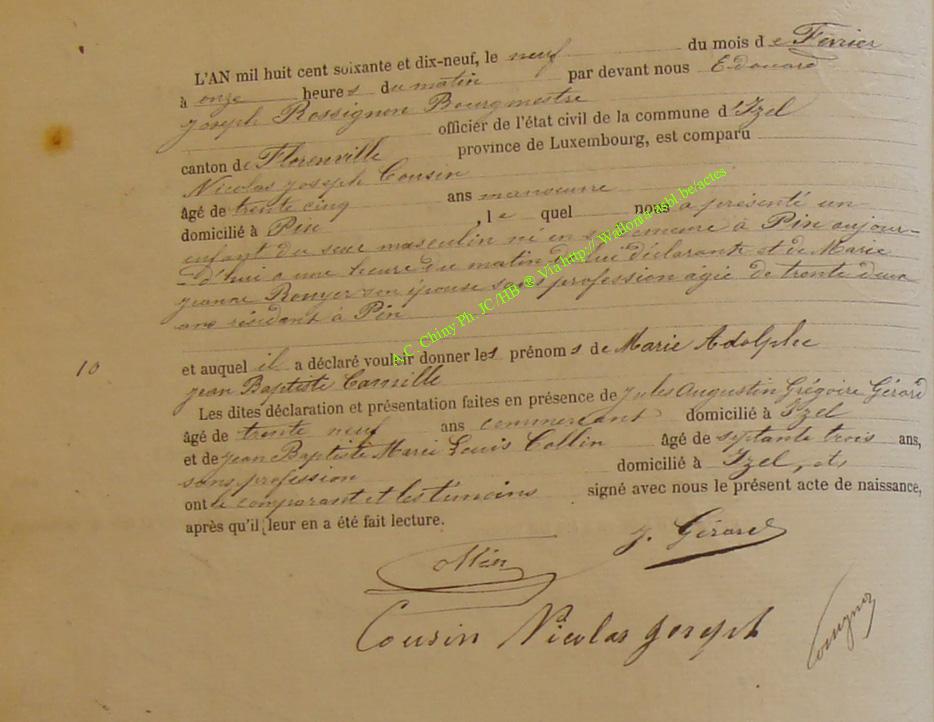 L'AN mil huit cent soixante et dix-neuf, le neuf du mois de Février
à onze heures du matin par devant nous Edouard
Joseph Rossignon Bourgmestre
officier de l'état civil de la commune d'Izel
canton de Florenville province de Luxembourg, est comparu
Nicolas Joseph Cousin
âgé de trente cinq ans manoeuvre
domicilié à Pin , le quel nous a présenté un
enfant du sexe masculin né en sa demeure à Pin aujour-
-d'hui a une heure du matin de lui déclarant et de Marie
Jeanne Rouyer son épouse sans profession agée de trente deux
ans résidant à Pin
10 et auquel il a déclaré vouloir donner les prénoms de Marie Adolphe
Jean Baptiste Camille
Les dites déclaration et présentation faites en présence de Jules Augustin Grégoire Gérard
âgé de trente neuf ans commercant domicilié à Izel
et de Jean Baptiste Marei Louis Collin âgé de septante trois ans,
sans profession domicilié à Izel, et,
ont le comparant et les témoins signé avec nous le présent acte de naissance,
après qu'il leur en a été fait lecture.
J. Gérard
Cousin Nicolas Joseph
A.C. Chiny Ph. JC /HB ® Via http:// Wallonia-asbl.be/actes